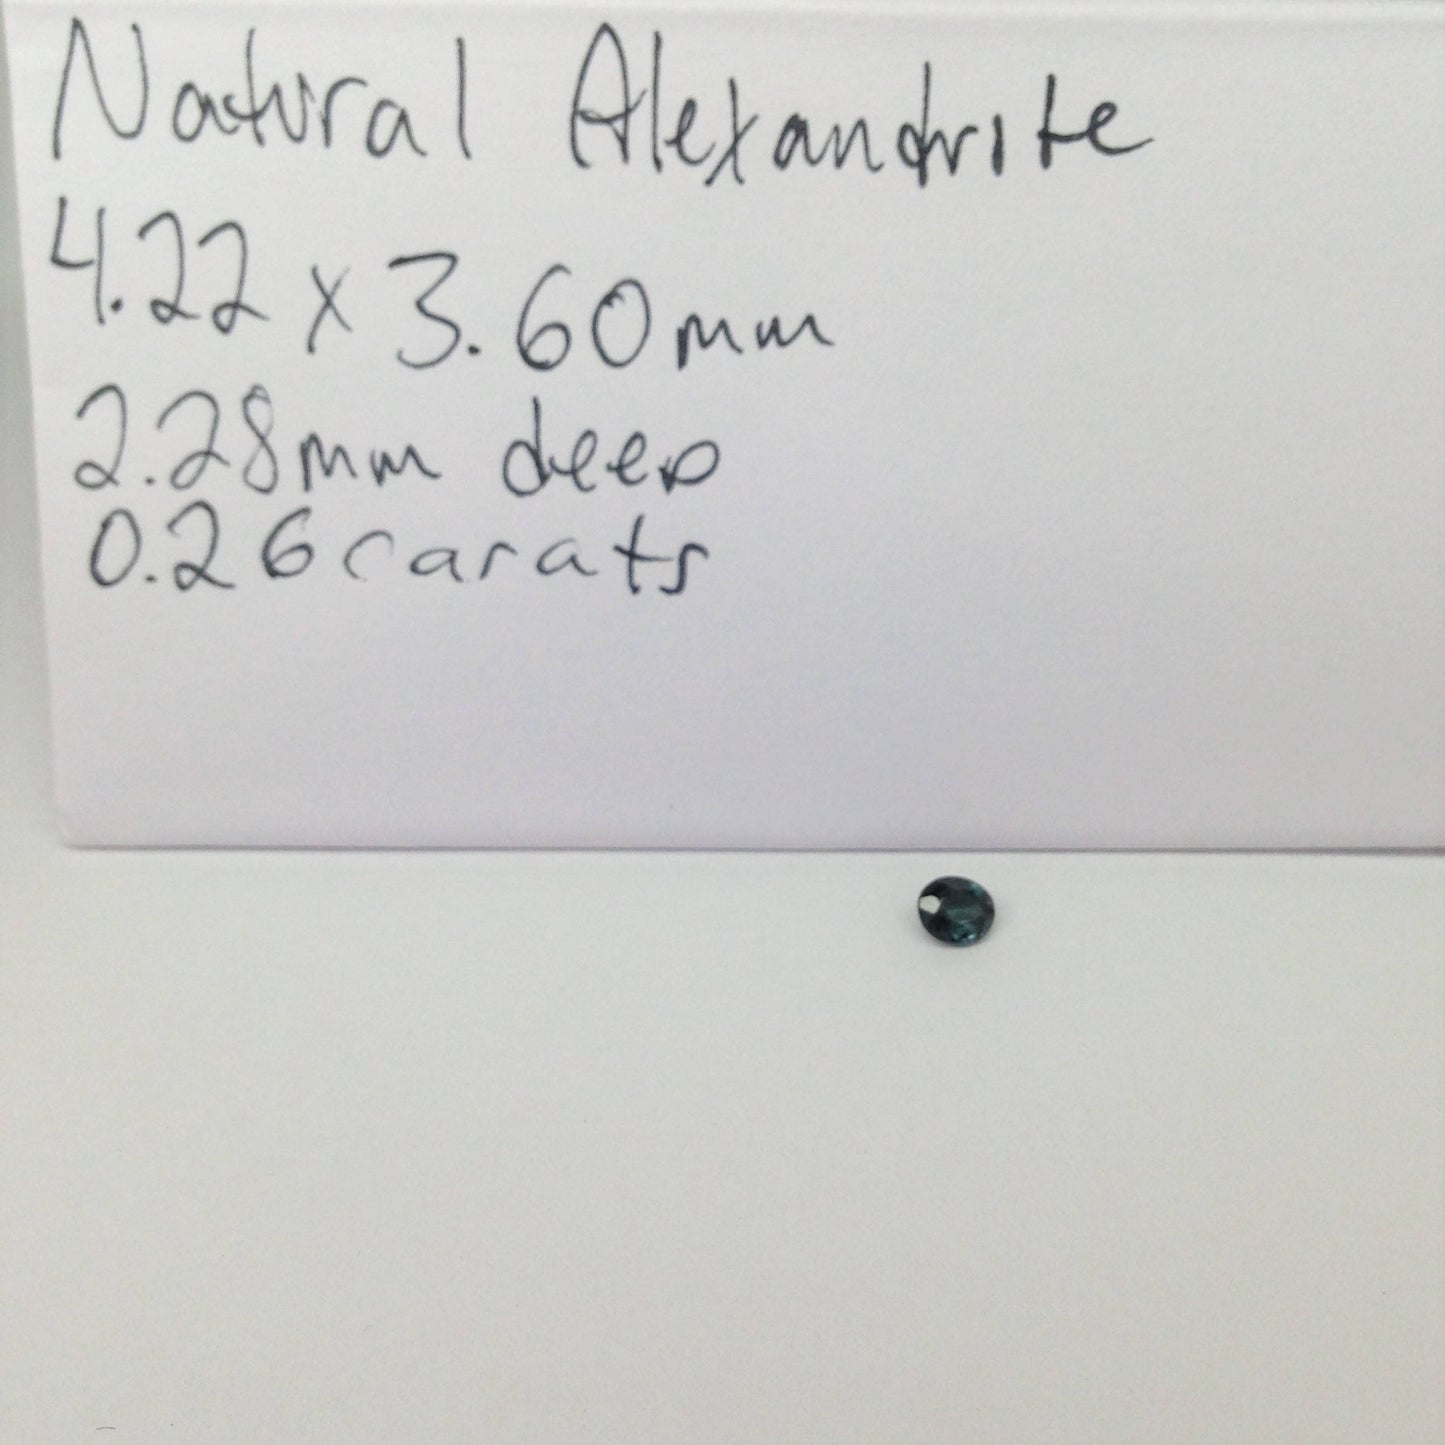 Natural Alexandrite
4.22 x 3.60mm
2.28mm deep
0.26 carats